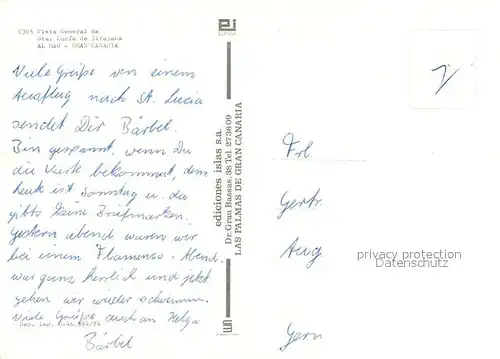 6365 Vista General de
Sta. Lucía de Tirajana
AL RAU - GRAN CANARIA
Viele Grüße von einem
Ausflug nach St. Lucia
sendet Dir Bärbel.
Bin gespannt, wenn Du
die Karte bekommst, denn
heute ist Sonntag u. da
gibts keine Briefmarken.
Gestern abend waren wir
bei einem Flamenco-Abend.
war ganz herrlich und jetzt
gehen wir wieder schwimmen.
Viele Grüße auch an Helga
Bärbel
ei
ediciones islas s.a.
Dr. Grau Bassas, 38 Tel. 273609
LAS PALMAS DE GRAN CANARIA
Frl
Gertr
Aug
Gern
privacy protection
Datenschutz